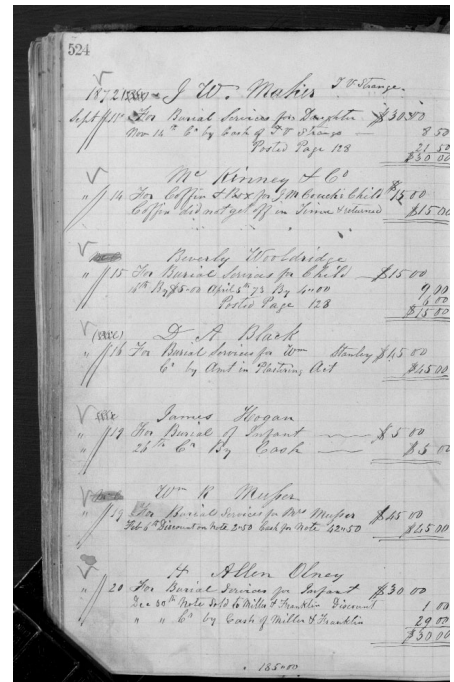 524
1872 J W. Maker T V Strange.
Sept 11 For Burial Services for Daughter $30.00
Nov 14th Cr by Cash of T V Strange — 8 50
Posted Page 128 21 50
$30 00
Mc Kinney & Co
" 14 For Coffin & Box for J M Child $15.00
Coffin did not get off in Time & returned $15.00
Beverly Wooldridge
" 15 For Burial Services for Child — $15 00
By $5.00 April 5th 73 By 4.00 9 00
Posted Page 128 6 00
$15 00
D A Black
" 16 For Burial Services for Wm Stanley $45 00
Cr by Amt in Plastering Act $45.00
James Hogan
" 19 For Burial of Infant — $5 00
" 26th Cr By Cash — $5 00
Wm R Musser
" 19 For Burial Services for Mrs Musser $45 00
Feb 6th Discount on Note 2.50 Cash for Note 42.50 $45 00
H Allen Olney
" 20 For Burial Services for Infant $30 00
Dec 30th Note Sold to Miller & Franklin Discount 1 00
" " Cr by Cash of Miller & Franklin 29 00
$30 00
185.00